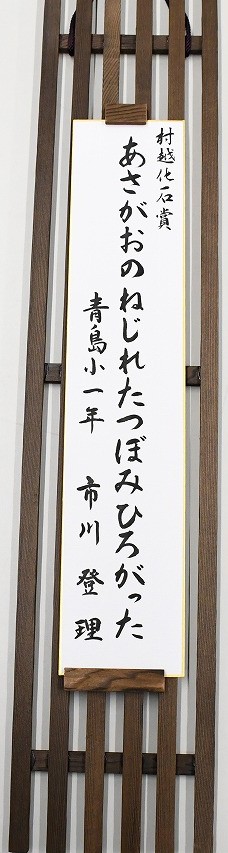 村越化石賞
あさがおのねじれたつぼみひろがった
青島小一年 市川 登理